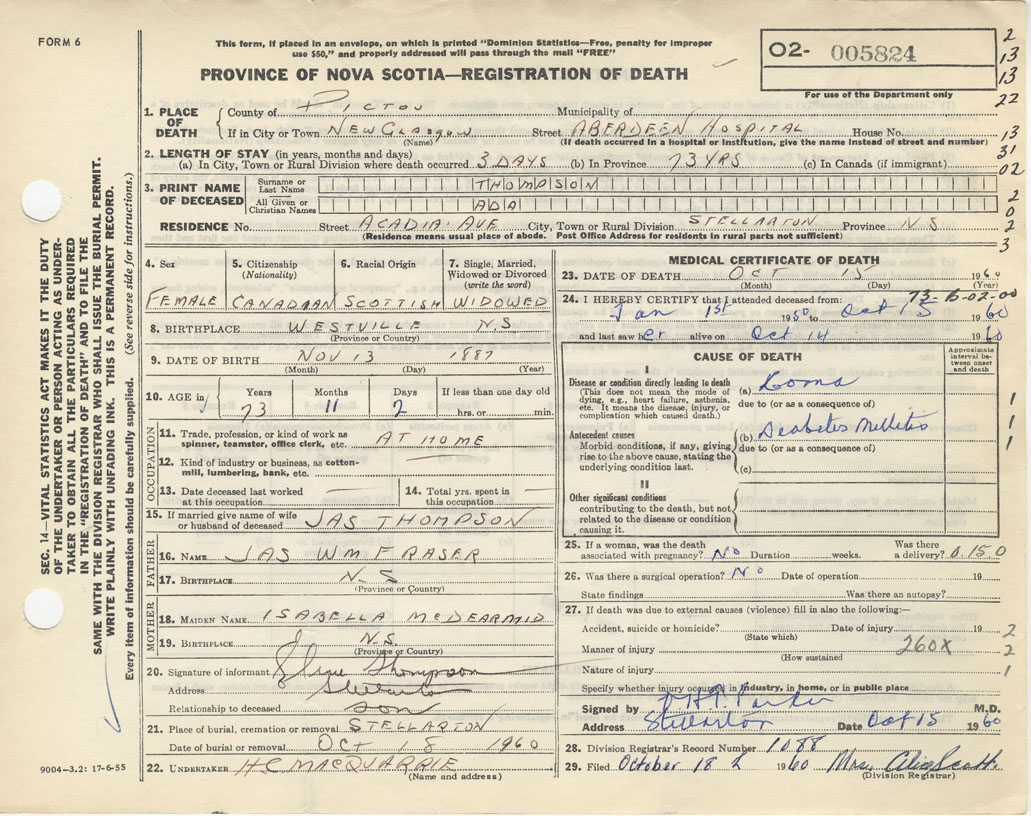 FORM 6
This form, if placed in an envelope, on which is printed "Dominion Statistics—Free, penalty for improper
use $50," and properly addressed will pass through the mail "FREE"
PROVINCE OF NOVA SCOTIA—REGISTRATION OF DEATH
O2- 005824
For use of the Department only
2
13
13
22
13
31
02
2
0
2
3
1. PLACE OF DEATH
County of PICTOU Municipality of
If in City or Town NEW GLASGOW Street ABERDEEN HOSPITAL House No.
(Name) (If death occurred in a hospital or institution, give the name instead of street and number)
2. LENGTH OF STAY (in years, months and days)
(a) In City, Town or Rural Division where death occurred 3 DAYS (b) In Province 73 YRS (c) In Canada (if immigrant)
3. PRINT NAME OF DECEASED
Surname or Last Name THOMPSON
All Given or Christian Names ADA
RESIDENCE No. Street ACADIA AVE City, Town or Rural Division STELLARTON Province N S
(Residence means usual place of abode. Post Office Address for residents in rural parts not sufficient)
4. Sex
FEMALE
5. Citizenship
(Nationality)
CANADIAN
6. Racial Origin
SCOTTISH
7. Single, Married,
Widowed or Divorced
(write the word)
WIDOWED
8. BIRTHPLACE WESTVILLE N.S
(Province or Country)
9. DATE OF BIRTH NOV 13 1887
(Month) (Day) (Year)
10. AGE in
Years Months Days If less than one day old
73 11 2 hrs. or min.
OCCUPATION
11. Trade, profession, or kind of work as
spinner, teamster, office clerk, etc. AT HOME
12. Kind of industry or business, as cotton-
mill, lumbering, bank, etc.
13. Date deceased last worked
at this occupation
14. Total yrs. spent in
this occupation
15. If married give name of wife
or husband of deceased JAS THOMPSON
FATHER
16. NAME JAS WM FRASER
17. BIRTHPLACE N.S
(Province or Country)
MOTHER
18. MAIDEN NAME ISABELLA MCDEARMID
19. BIRTHPLACE N.S.
(Province or Country)
20. Signature of informant Thompson
Address Stellarton
Relationship to deceased son
21. Place of burial, cremation or removal STELLARTON
Date of burial or removal OCT 18 1960
22. UNDERTAKER H C MACQUARRIE
(Name and address)
MEDICAL CERTIFICATE OF DEATH
23. DATE OF DEATH OCT 15 1960
(Month) (Day) (Year)
73-B-02-00
24. I HEREBY CERTIFY that I attended deceased from:
Jan 1st 1950 to Oct 15 1960
and last saw her alive on Oct 14 1960
CAUSE OF DEATH
Approximate interval be-tween onset and death
I
Disease or condition directly leading to death
(This does not mean the mode of
dying, e.g., heart failure, asthenia,
etc. It means the disease, injury, or
complication which caused death.)
(a) Coma
due to (or as a consequence of)
Antecedent causes
Morbid conditions, if any, giving
rise to the above cause, stating the
underlying condition last.
(b) Diabetes Mellitis
due to (or as a consequence of)
(c)
II
Other significant conditions
contributing to the death, but not
related to the disease or condition
causing it.
1
1
1
25. If a woman, was the death
associated with pregnancy? No Duration weeks. Was there
a delivery? 0.150
26. Was there a surgical operation? No Date of operation 19
State findings Was there an autopsy?
27. If death was due to external causes (violence) fill in also the following:—
Accident, suicide or homicide? Date of injury 19
(State which)
Manner of injury 260X
(How sustained
Nature of injury
2
2
1
Specify whether injury occurred in industry, in home, or in public place
Signed by Parker M.D.
Address Stellarton Date Oct 15 1960
28. Division Registrar's Record Number 1088
29. Filed October 18 1960 Mrs. Scott
(Division Registrar)
SEC. 14—VITAL STATISTICS ACT MAKES IT THE DUTY
OF THE UNDERTAKER OR PERSON ACTING AS UNDER-
TAKER TO OBTAIN ALL THE PARTICULARS REQUIRED
IN THE "REGISTRATION OF DEATH" AND TO FILE THE
SAME WITH THE DIVISION REGISTRAR WHO SHALL ISSUE THE BURIAL PERMIT.
WRITE PLAINLY WITH UNFADING INK. THIS IS A PERMANENT RECORD.
Every item of information should be carefully supplied. (See reverse side for instructions.)
9004—3.2: 17-6-55